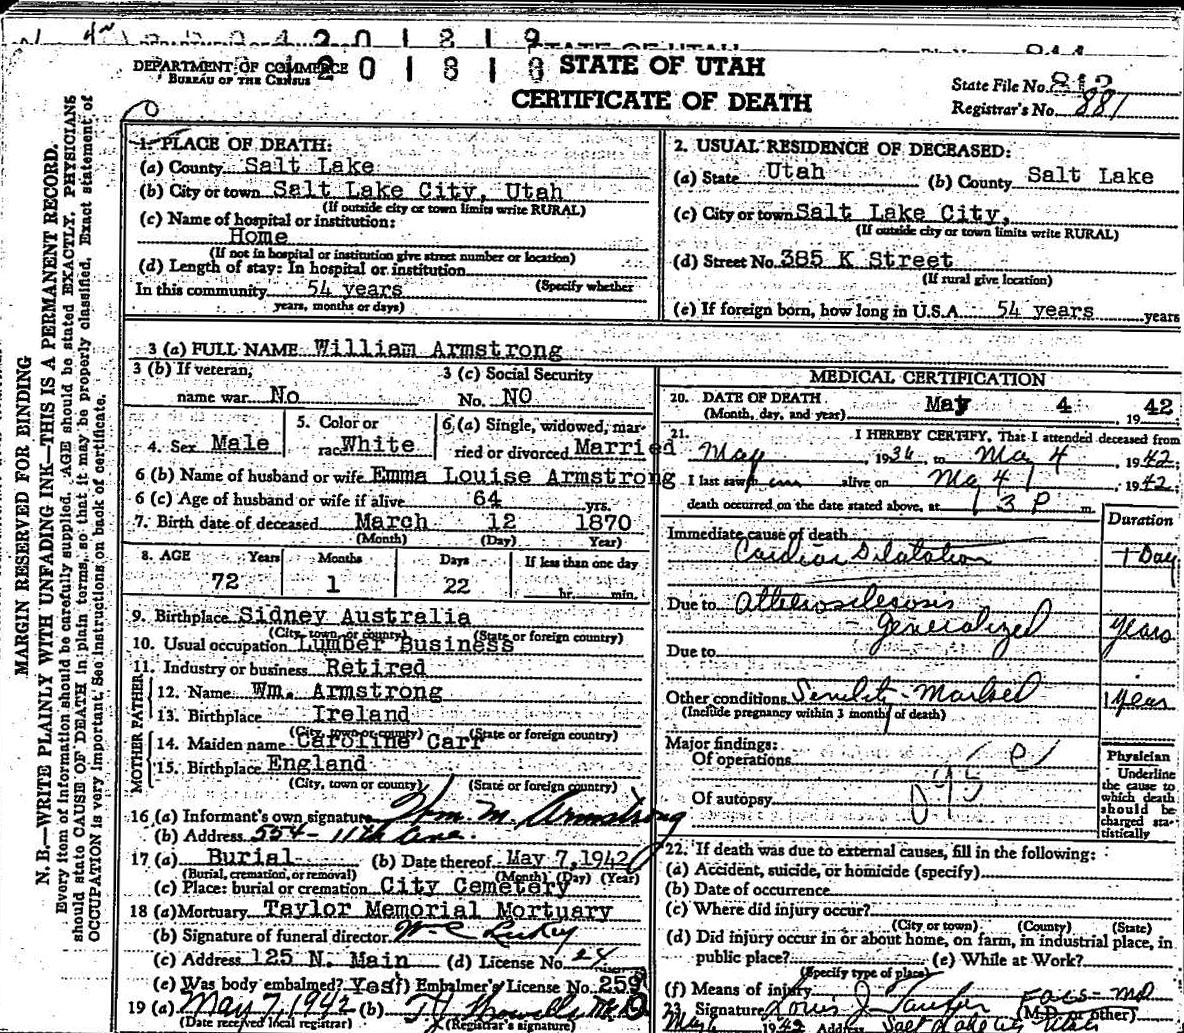 DEPARTMENT OF COMMERCE
BUREAU OF THE CENSUS
STATE OF UTAH
CERTIFICATE OF DEATH
State File No. 812
Registrar's No. 881
MARGIN RESERVED FOR BINDING
N. B.—WRITE PLAINLY WITH UNFADING INK—THIS IS A PERMANENT RECORD.
Every item of information should be carefully supplied. AGE should be stated EXACTLY. PHYSICIANS
should state CAUSE OF DEATH in plain terms, so that it may be properly classified. Exact statement of
OCCUPATION is very important. See instructions on back of certificate.
1. PLACE OF DEATH:
(a) County Salt Lake
(b) City or town Salt Lake City, Utah
(If outside city or town limits write RURAL)
(c) Name of hospital or institution:
Home
(If not in hospital or institution give street number or location)
(d) Length of stay: In hospital or institution
(Specify whether
In this community 54 years
years, months or days)
2. USUAL RESIDENCE OF DECEASED:
(a) State Utah (b) County Salt Lake
(c) City or town Salt Lake City,
(If outside city or town limits write RURAL)
(d) Street No. 385 K Street
(If rural give location)
(e) If foreign born, how long in U.S.A. 54 years years
3 (a) FULL NAME William Armstrong
3 (b) If veteran, name war No
3 (c) Social Security No. NO
4. Sex Male
5. Color or race White
6 (a) Single, widowed, married or divorced Married
6 (b) Name of husband or wife Emma Louise Armstrong
6 (c) Age of husband or wife if alive 64 yrs.
7. Birth date of deceased March 12 1870
(Month) (Day) Year)
8. AGE Years Months Days If less than one day
72 1 22 hr. min.
9. Birthplace Sidney Australia
(City, town, or county) (State or foreign country)
10. Usual occupation Lumber Business
11. Industry or business Retired
FATHER
12. Name Wm. Armstrong
13. Birthplace Ireland
(City, town or county) (State or foreign country)
MOTHER
14. Maiden name Caroline Carr
15. Birthplace England
(City, town or county) (State or foreign country)
16 (a) Informant's own signature Wm. M. Armstrong
(b) Address 554 - 11th Ave.
17 (a) Burial (b) Date thereof May 7, 1942
(Burial, cremation, or removal) (Month) (Day) (Year)
(c) Place: burial or cremation City Cemetery
18 (a) Mortuary Taylor Memorial Mortuary
(b) Signature of funeral director
(c) Address 125 N. Main (d) License No. 24
(e) Was body embalmed? Yes Embalmer's License No. 259
19 (a) May 7, 1942 (b)
(Date received local registrar) (Registrar's signature)
MEDICAL CERTIFICATION
20. DATE OF DEATH
(Month, day, and year) May 4 1942
21. I HEREBY CERTIFY, That I attended deceased from
May, 1936, to May 4, 1942,
I last saw him alive on May 4, 1942,
death occurred on the date stated above, at 3 P m.
Duration
Immediate cause of death
Cardiac Dilatation 1 Day
Due to Atteriosclerosis
Generalized years
Due to
Other conditions Senility - Marked 1 Year
(Include pregnancy within 3 months of death)
Major findings:
Of operations
Of autopsy
Physician
Underline
the cause to
which death
should be
charged sta-
tistically
22. If death was due to external causes, fill in the following:
(a) Accident, suicide, or homicide (specify)
(b) Date of occurrence
(c) Where did injury occur?
(City or town) (County) (State)
(d) Did injury occur in or about home, on farm, in industrial place, in
public place? (e) While at Work?
(Specify type of place)
(f) Means of injury
23. Signature Louis J.
(M.D. or other)
1942 Address Salt Lake